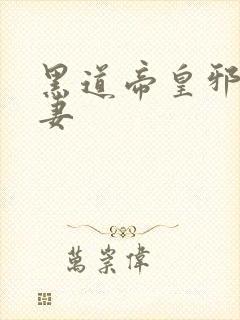 黑道帝皇邪
妻
萬崇偉